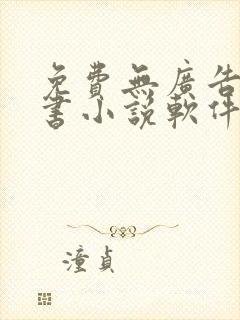 免費無廣告
書小説軟件
潼貞